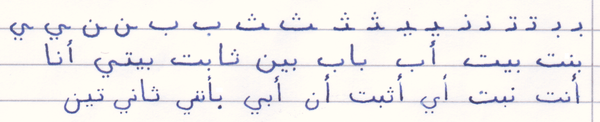 بـ بـ تـ تـ نـ نـ يـ يـ ثـ ثـ ث ث ب ب ن ن ي ي
بنت بيت أب باب بين ثابت بيتي أنا
أنت نبت أي أثبت أن أبي ثاني تين